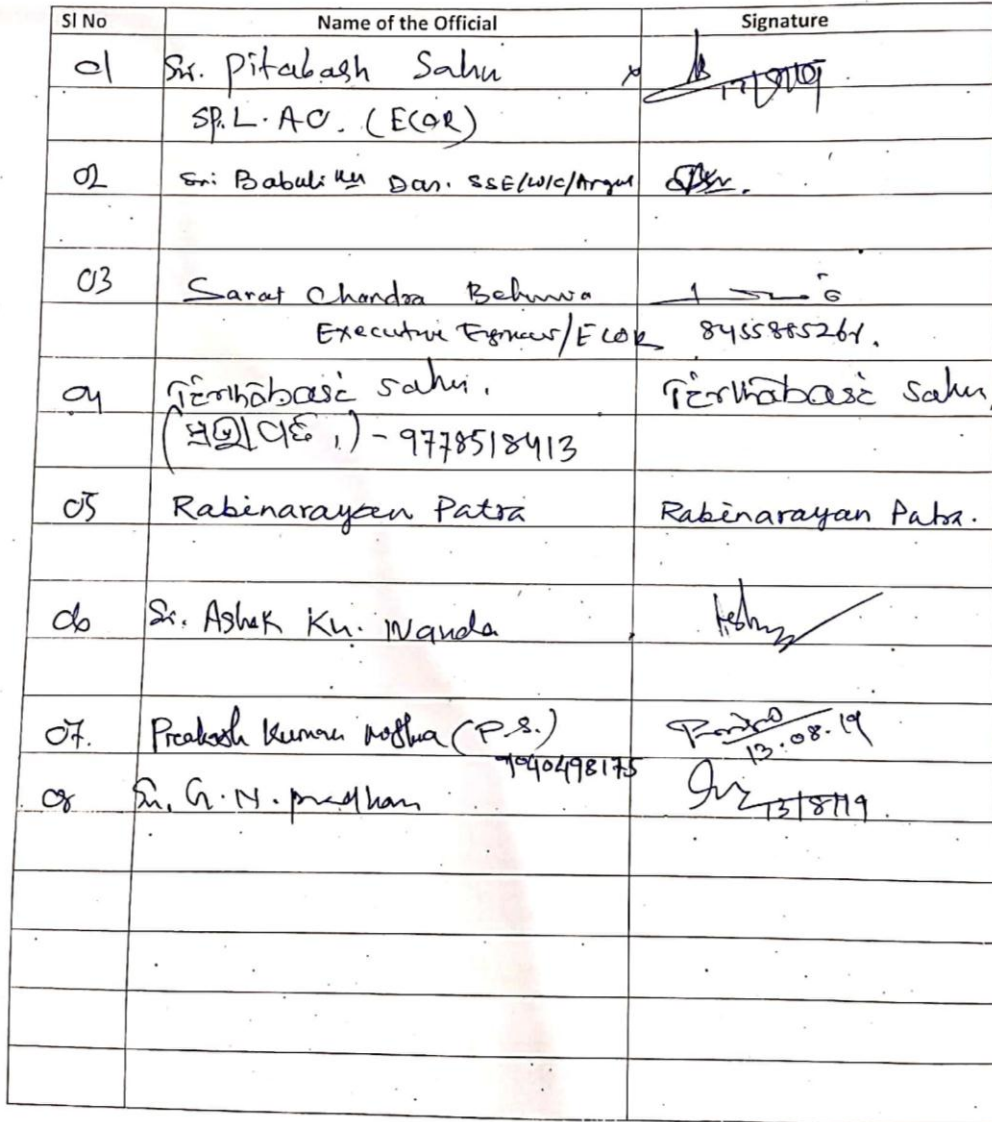 Sl No Name of the Official Signature
01 Sri. Pitabash Sahu
SP. L. A.O. (ECOR)
02 Sri Babuli Ku Das. SSE/W/C/Argul
03 Sarat Chandra Behera
Executive Engineer/ECOR 8455885261.
04 Tirthabasi Sahu. Tirthabasi Sahu,
- 9778518413
05 Rabinarayan Patra Rabinarayan Patra.
06 Sri. Ashok Ku. Nanda
07. Prakash Kumar (P.S.) 13.08.19
9040498175
08 Sri. G. N. pradhan 13/8/19.